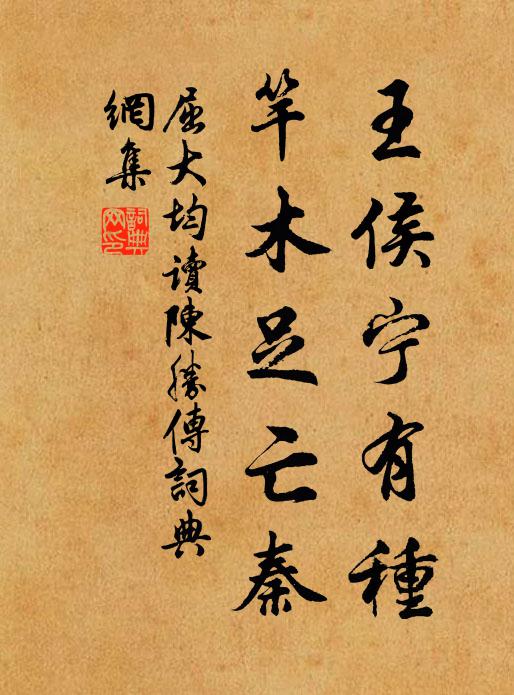 王侯宁有種
竿木足亡秦
屈大均讀陳勝傳詞典
網集
詞典網印